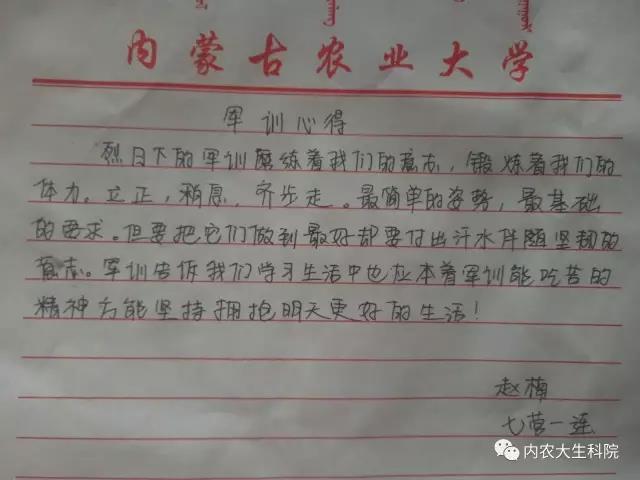 内蒙古农业大学
军训心得
烈日下的军训磨练着我们的意志，锻炼着我们的
体力。立正，稍息，齐步走。最简单的姿势，最基础
的要求。但要把它们做到最好却要付出汗水伴随坚韧的
意志。军训告诉我们学习生活中也应本着军训能吃苦的
精神方能坚持拥抱明天更好的生活！
赵楠
七营一连
内农大生科院